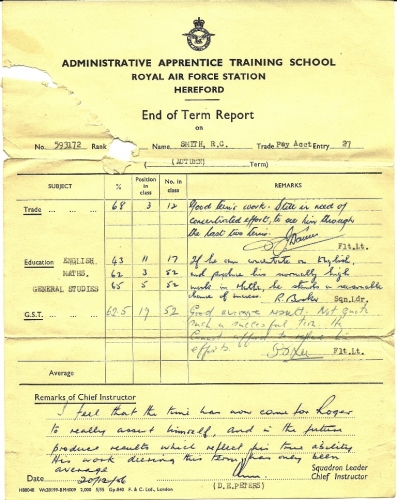 ADMINISTRATIVE APPRENTICE TRAINING SCHOOL
ROYAL AIR FORCE STATION
HEREFORD
End of Term Report
on
No. 593172 Rank Name SMITH, R.G. Trade Pay Acct Entry 27
(AUTUMN) Term)
SUBJECT % Position in class No. in class REMARKS
Trade 68 3 12 Good term's work. Still in need of
concentrated effort, to see him through
the last two terms.
Flt.Lt.
Education ENGLISH. 43 11 17 If he can concentrate on English,
MATHS. 62 3 52 and produce his normally high
GENERAL STUDIES 65 5 52 marks in Maths, he stands a reasonable
chance of success. R. Sqn.Ldr.
G.S.T. 62.5 19 52 Good average result. Not quite
such a successful term. He
efforts. Flt.Lt.
Average
Remarks of Chief Instructor
I feel that the time has now come for Roger
to really assert himself, and in the future
produce results which reflect his true ability.
His work during this term has only been
average
Squadron Leader
Date Chief Instructor
(D.E.PETERS)
F. & C. Ltd., London